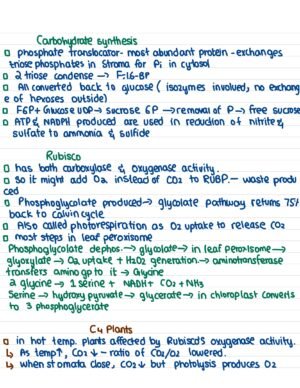 Carbohydrate synthesis
▫ phosphate translocator- most abundant protein - exchanges
triose phosphates in Stroma for Pi in cytosol
▫ 2 triose condense → F-1,6-BP
▫ All converted back to glucose ( isozymes involved, no exchang
e of hexoses outside)
▫ F6P + Glucose UDP → sucrose 6P → removal of P → free sucrose
▫ ATP & NADPH produced are used in reduction of nitrite &
sulfate to ammonia & sulfide
Rubisco
▫ has both carboxylase & oxygenase activity.
▫ so it might add O2 instead of CO2 to RUBP. - waste produ
ced
▫ Phosphoglycolate produced → glycolate pathway returns 75%
back to calvin cycle
▫ Also called photorespiration as O2 uptake to release CO2
▫ most steps in leaf peroxisome
Phosphoglycolate dephos. → glycolate → in leaf peroxisome →
glyoxylate → O2 uptake + H2O2 generation → aminotransferase
transfers amino gp to it → Glycine
2 glycine → 1 serine + NADH + CO2 + NH3
Serine → hydroxy pyruvate → glycerate → in chloroplast converts
to 3 phosphoglycerate
C4 Plants
▫ in hot temp. plants affected by Rubisco's oxygenase activity.
↳ As temp↑, CO2 ↓ - ratio of CO2/O2 lowered.
↳ when stomata close, CO2 ↓ but photolysis produces O2